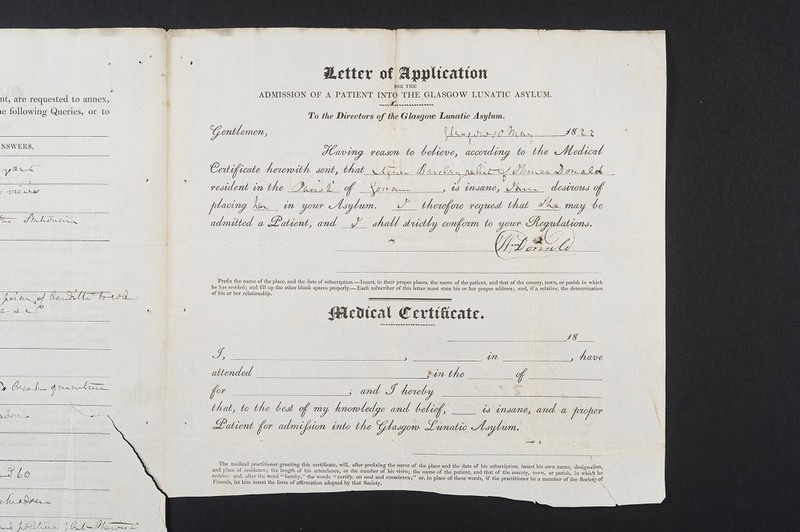 nt, are requested to annex,
e following Queries, or to
NSWERS.
Letter of Application
FOR THE
ADMISSION OF A PATIENT INTO THE GLASGOW LUNATIC ASYLUM.
To the Directors of the Glasgow Lunatic Asylum.
Gentlemen, Glasgow 10 May 1822
Having reason to believe, according to the Medical
Certificate herewith sent, that Agnes Barclay relict of James Donald
resident in the Parish of Govan, is insane, I am desirous of
placing her in your Asylum. I therefore request that She may be
admitted a Patient, and I shall strictly conform to your Regulations.
Donald
Prefix the name of the place, and the date of subscription.—Insert, in their proper places, the name of the patient, and that of the county, town, or parish in which
he has resided; and fill up the other blank spaces properly.—Each subscriber of this letter must state his or her proper address; and, if a relative, the denomination
of his or her relationship.
Medical Certificate.
18
I, , in , have
attended , in the of
for ; and I hereby
that, to the best of my knowledge and belief, is insane, and a proper
Patient for admission into the Glasgow Lunatic Asylum.
The medical practitioner granting this certificate, will, after prefixing the name of the place and the date of his subscription, insert his own name, designation,
and place of residence; the length of his attendance, or the number of his visits; the name of the patient, and that of the county, town, or parish, in which he
resides: and, after the word "hereby," the words "certify, on soul and conscience;" or, in place of these words, if the practitioner be a member of the Society of
Friends, let him insert the form of affirmation adopted by that Society.